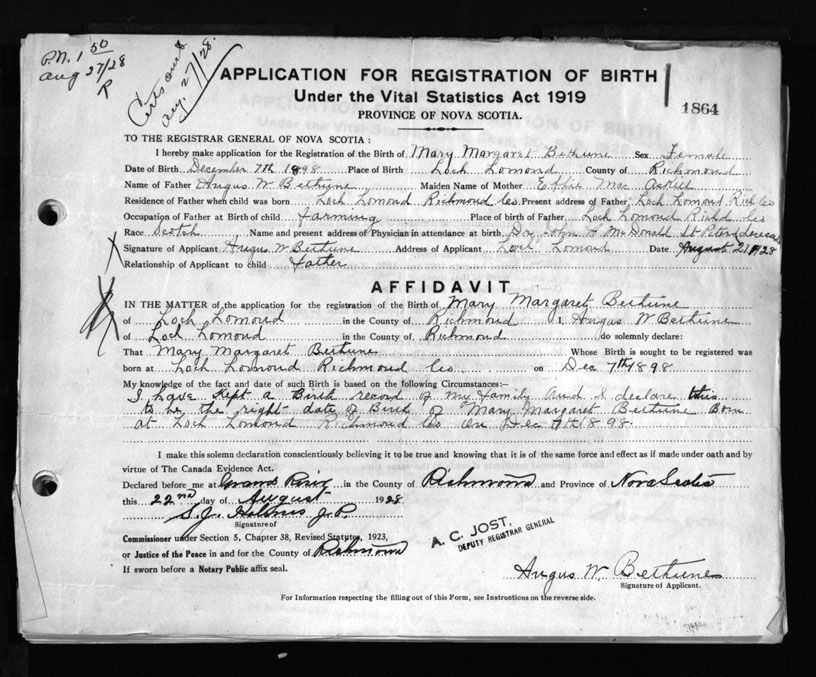 P.N. 1 50
Aug 27/28
R
Certs out
Aug. 27/28.
APPLICATION FOR REGISTRATION OF BIRTH
Under the Vital Statistics Act 1919
PROVINCE OF NOVA SCOTIA.
1864
TO THE REGISTRAR GENERAL OF NOVA SCOTIA :
I hereby make application for the Registration of the Birth of Mary Margaret Bethune Sex Female
Date of Birth December 7th 1898 Place of Birth Loch Lomond County of Richmond
Name of Father Angus W Bethune Maiden Name of Mother Effie Mac Askill
Residence of Father when child was born Loch Lomond Richmond Co. Present address of Father Loch Lomond Rich Co
Occupation of Father at Birth of child farming Place of birth of Father Loch Lomond Richd Co
Race Scotch Name and present address of Physician in attendance at birth Dr. John A McDonald St Peters deceased
Signature of Applicant Angus W Bethune Address of Applicant Loch Lomond Date August 21 1928
Relationship of Applicant to child father
AFFIDAVIT
IN THE MATTER of the application for the registration of the Birth of Mary Margaret Bethune
of Loch Lomond in the County of Richmond I, Angus W Bethune
of Loch Lomond in the County of Richmond do solemnly declare:
That Mary Margaret Bethune Whose Birth is sought to be registered was
born at Loch Lomond Richmond Co on Dec 7th 1898
My knowledge of the fact and date of such Birth is based on the following Circumstances:—
I have kept a Birth record of my family And I declare this
to be the right date of Birth of Mary Margaret Bethune Born
at Loch Lomond Richmond Co On Dec 7th 1898.
I make this solemn declaration conscientiously believing it to be true and knowing that it is of the same force and effect as if made under oath and by
virtue of The Canada Evidence Act.
Declared before me at Grand River in the County of Richmond and Province of Nova Scotia
this 22nd day of August 1928
S.J. J.P.
Signature of
Commissioner under Section 5, Chapter 38, Revised Statutes, 1923,
or Justice of the Peace in and for the County of Richmond
If sworn before a Notary Public affix seal.
A. C. JOST,
DEPUTY REGISTRAR GENERAL
Angus W. Bethune
Signature of Applicant.
For Information respecting the filling out of this Form, see Instructions on the reverse side.